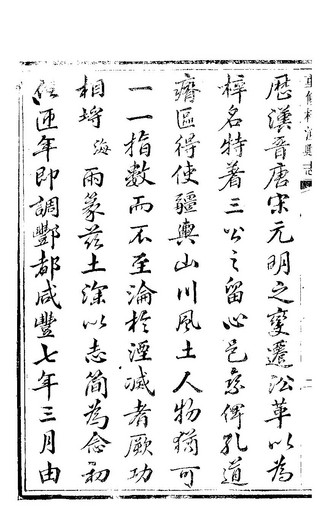 歷漢晉唐宋元明之變遷沿革以為
梓名特著三公之留心邑乘俾孔道
瘠區得使疆輿山川風土人物猶可
一一指數而不至淪於湮滅者厥功
相埒海雨篆茲土深以志簡為念初
任匝年即調酆都咸豐七年三月由